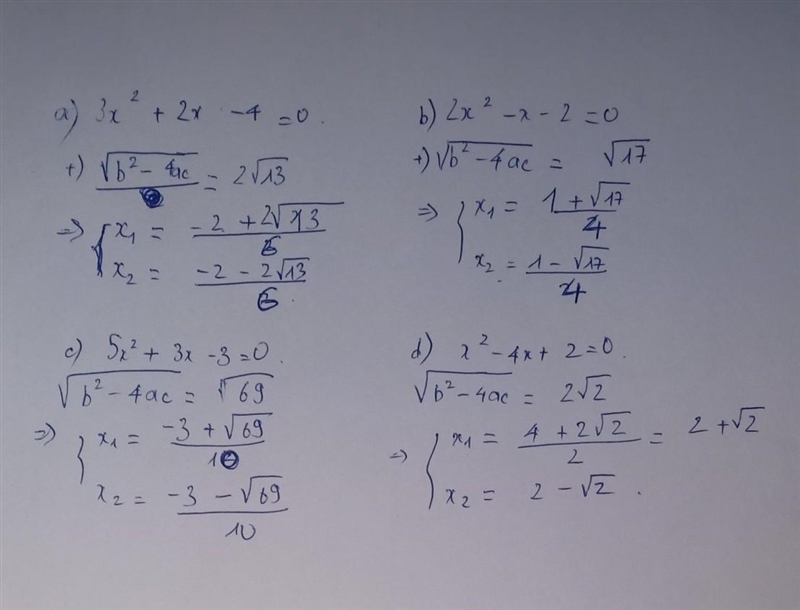 a) 3x² + 2x - 4 = 0.
+) √(b² - 4ac) = 2√13
=> { x₁ = (-2 + 2√13)/6
x₂ = (-2 - 2√13)/6.
b) 2x² - x - 2 = 0
+) √(b² - 4ac) = √17
=> { x₁ = (1 + √17)/4
x₂ = (1 - √17)/4
c) 5x² + 3x - 3 = 0.
√(b² - 4ac) = √69
=> { x₁ = (-3 + √69)/10
x₂ = (-3 - √69)/10
d) x² - 4x + 2 = 0.
√(b² - 4ac) = 2√2
=> { x₁ = (4 + 2√2)/2 = 2 + √2
x₂ = 2 - √2.